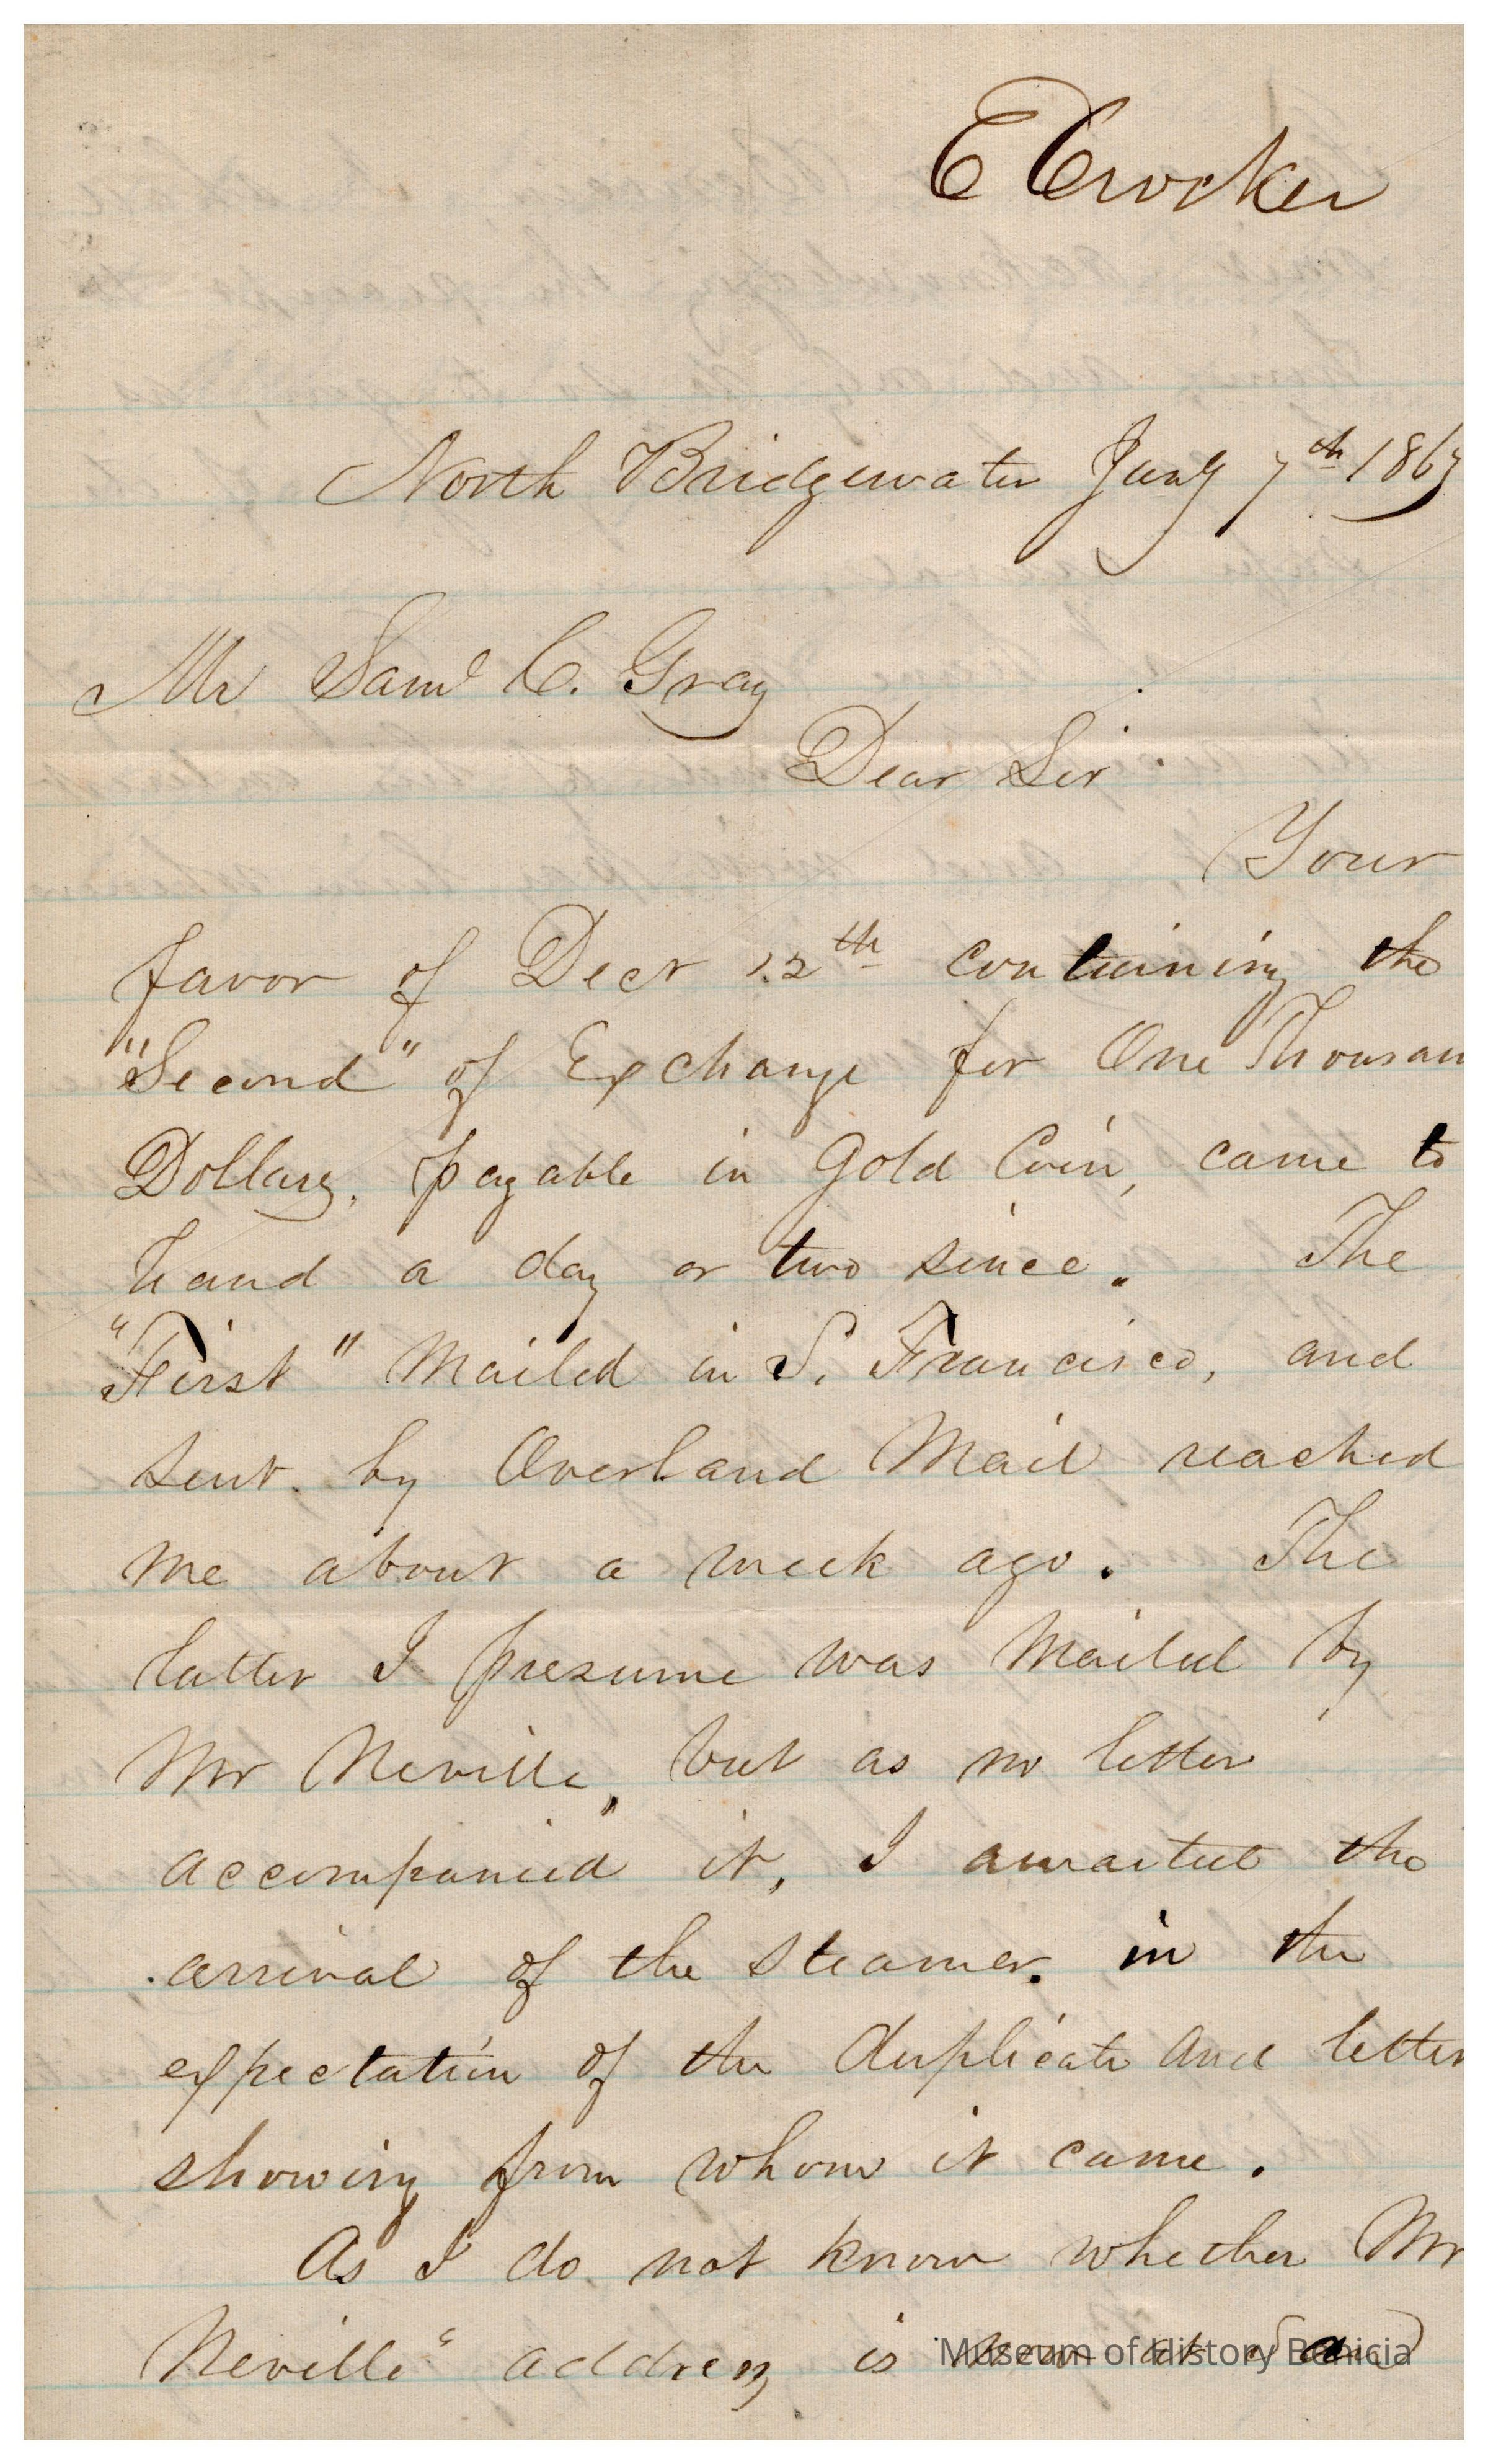 E Crocker
North Bridgewater Jany 7th 1867
Mr Saml C. Gray
Dear Sir
Your
favor of Decr 12th containing the
"Second" of Exchange for One Thousan
Dollars, payable in Gold Coin, came to
hand a day or two since. The
"First" Mailed in S. Francisco, and
sent by Overland Mail reached
me about a week ago. The
latter I presume was Mailed by
Mr Neville, but as no letter
accompanied it, I awaited the
arrival of the steamer. in the
expectation of the duplicate and letter
showing from whom it came.
As I do not know whether Mr
Neville' address is
Museum of History Benicia